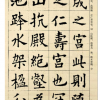 成之宮此則
之仁壽宮也
山抗殿絕壑
池跨水架楹